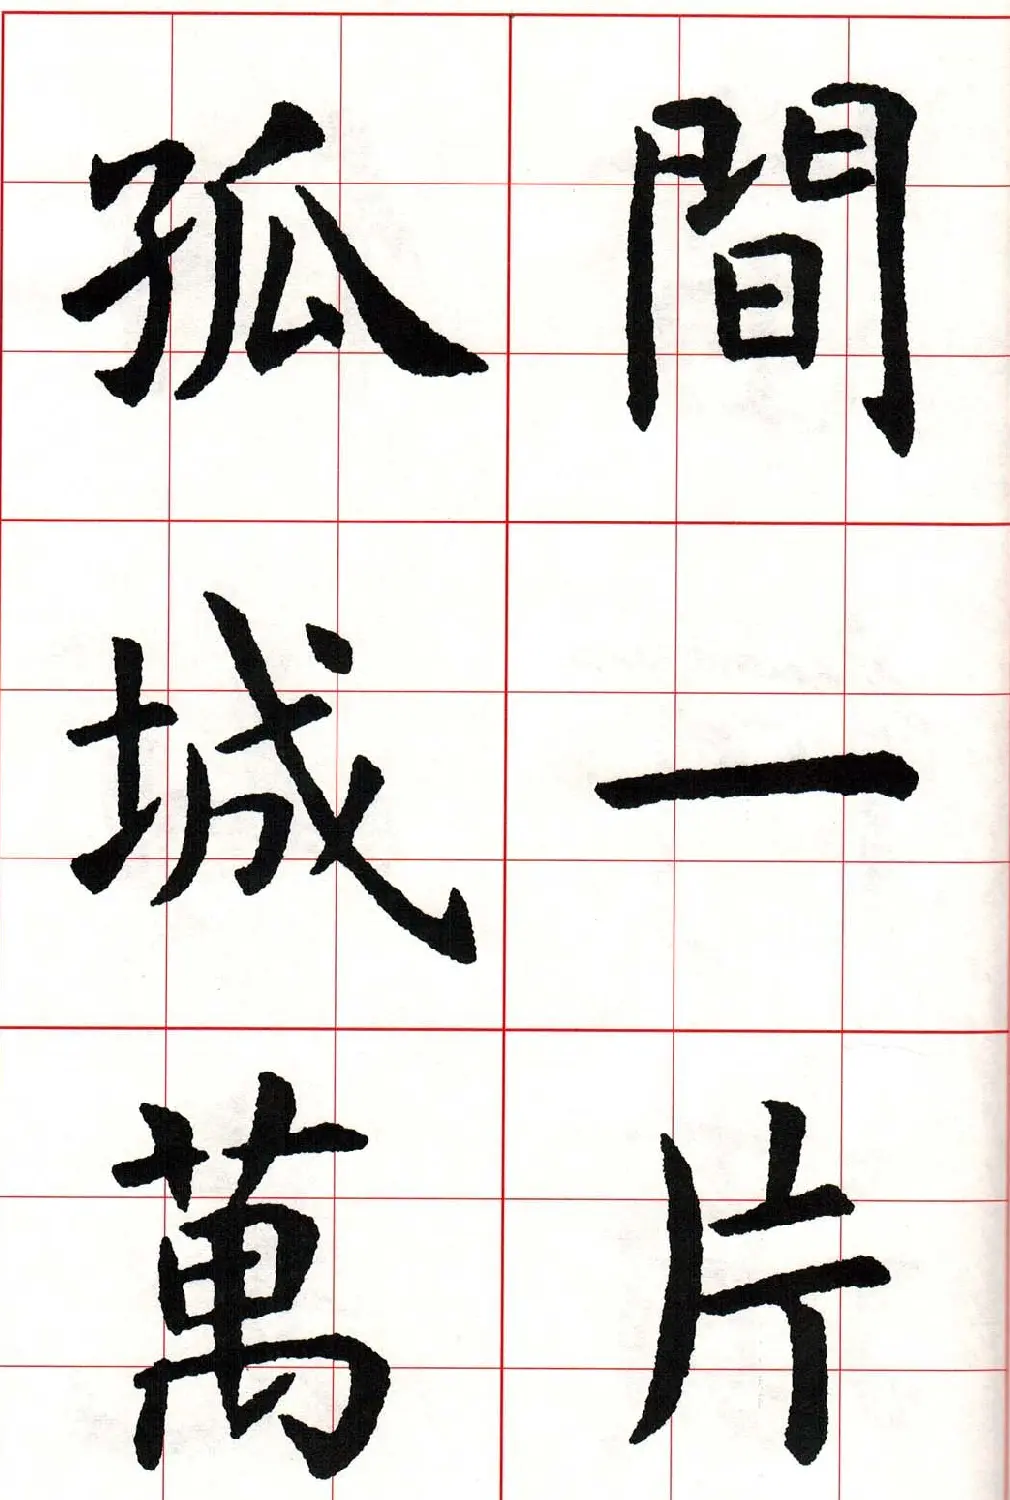 間一片
孤城萬